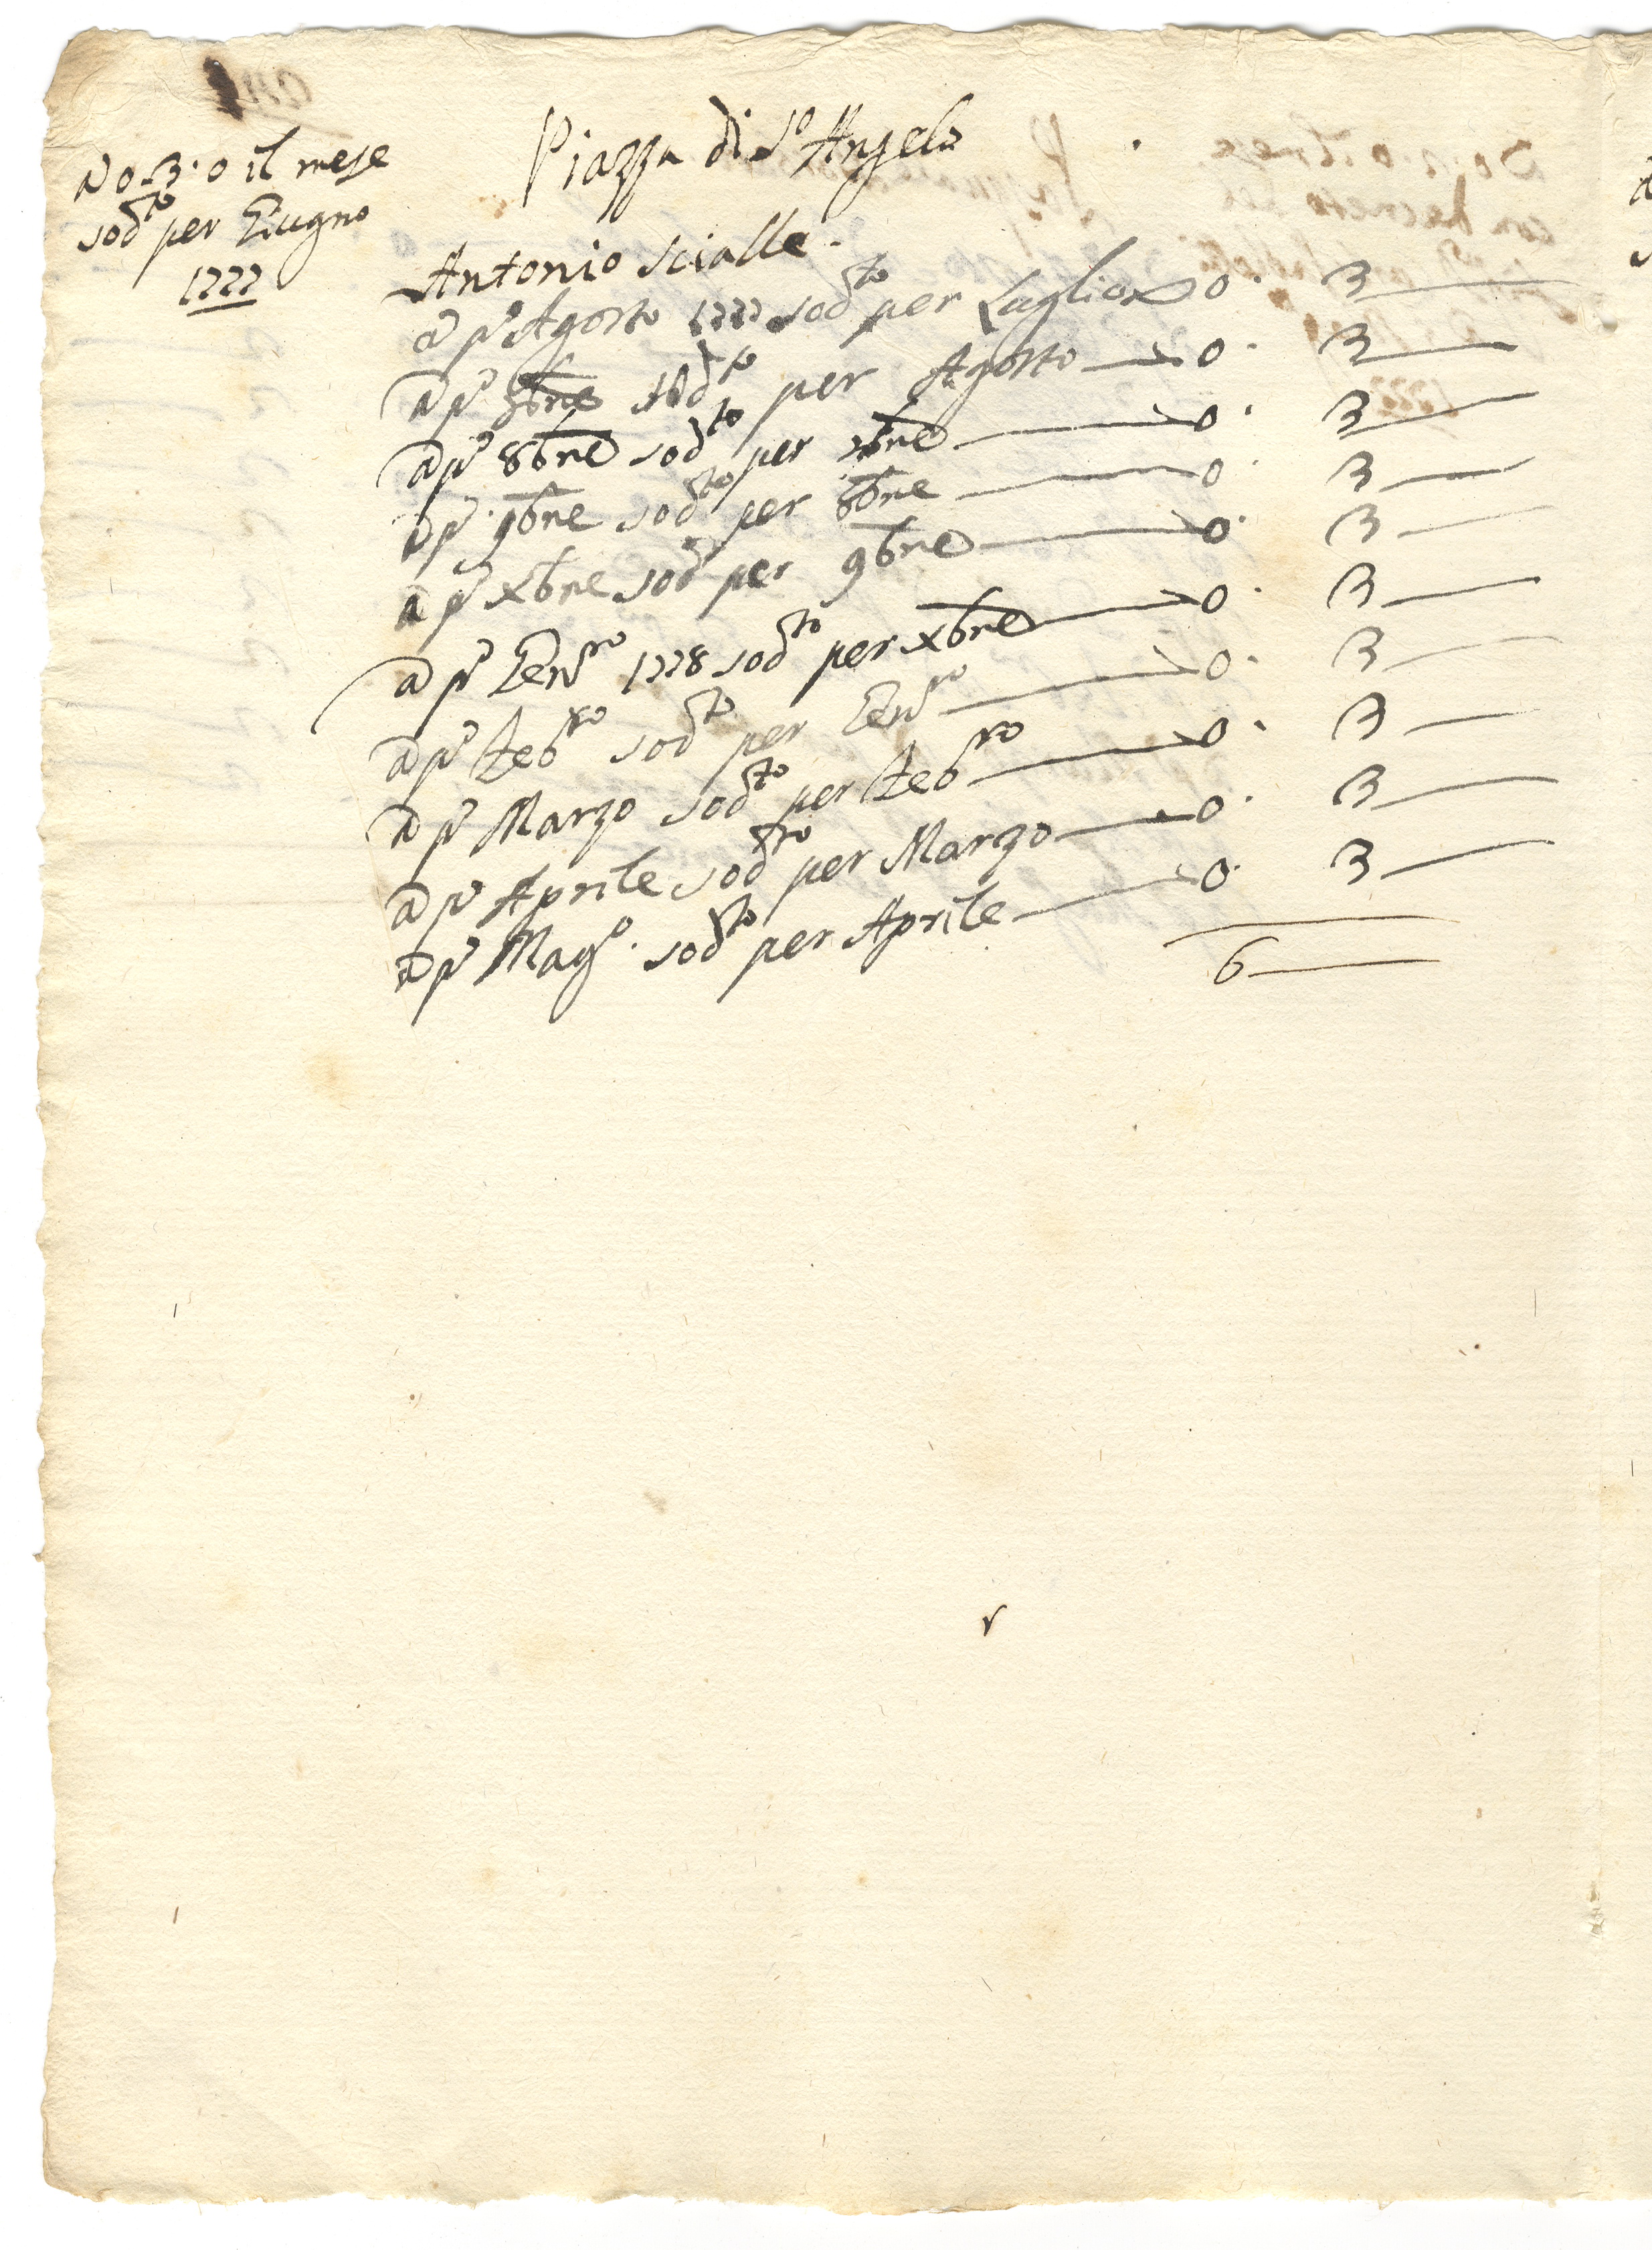 Piazza di S.º Angelo
a 0.3.0 il mese
sod.to per Giugno
1777
Antonio Scialle.
a p.º Agosto 1777 sod.to per Luglio 0. 3
a p.º 7bre sod.to per Agosto 0. 3
a p.º 8bre sod.to per 7bre 0. 3
a p.º 9bre sod.to per 8bre 0. 3
a p.º xbre sod.to per 9bre 0. 3
a p.º Gen.ro 1778 sod.to per xbre 0. 3
a p.º Feb.ro sod.to per Gen.ro 0. 3
a p.º Marzo sod.to per Feb.ro 0. 3
a p.º Aprile sod.to per Marzo 0. 3
a p.º Mag.º sod.to per Aprile 0. 3
6